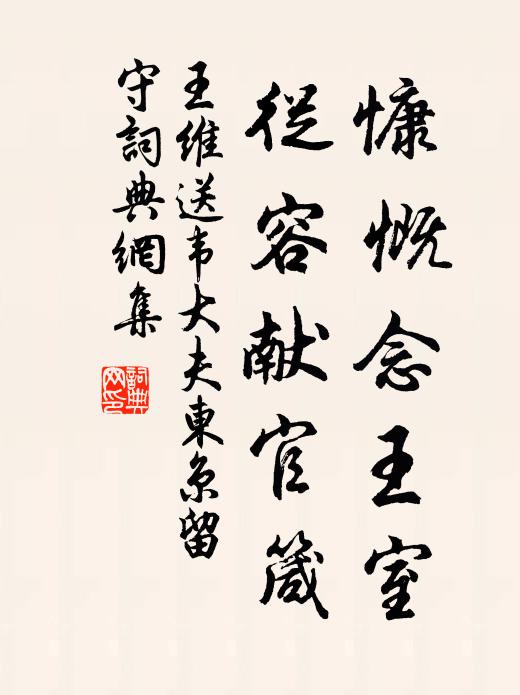 慷慨念王室
从容献官箴
王維送韦大夫東京留
守詞典網集
詞典
网印